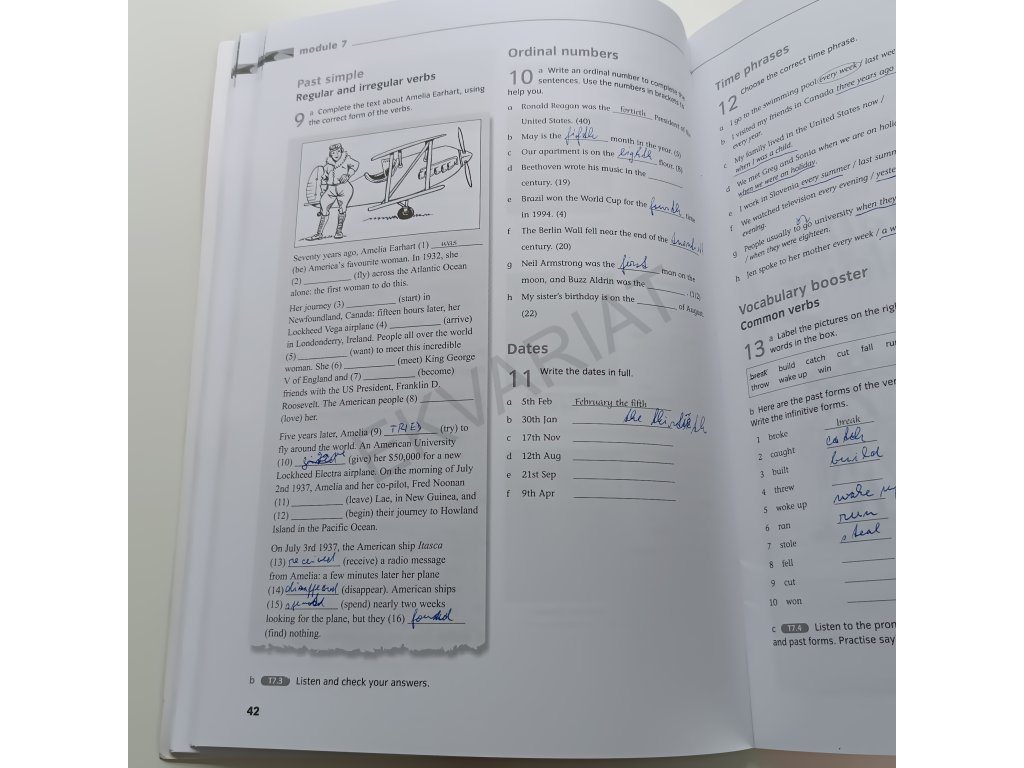 module 7
Past simple
Regular and irregular verbs
9 a Complete the text about Amelia Earhart, using
the correct form of the verbs.
Seventy years ago, Amelia Earhart (1) was
(be) America's favourite woman. In 1932, she
(2) ________ (fly) across the Atlantic Ocean
alone: the first woman to do this.
Her journey (3) ________ (start) in
Newfoundland, Canada: fifteen hours later, her
Lockheed Vega airplane (4) ________ (arrive)
in Londonderry, Ireland. People all over the world
(5) ________ (want) to meet this incredible
woman. She (6) ________ (meet) King George
V of England and (7) ________ (become)
friends with the US President, Franklin D.
Roosevelt. The American people (8) ________
(love) her.
Five years later, Amelia (9) TRIED (try) to
fly around the world. An American University
(10) (give) her $50,000 for a new
Lockheed Electra airplane. On the morning of July
2nd 1937, Amelia and her co-pilot, Fred Noonan
(11) ________ (leave) Lae, in New Guinea, and
(12) ________ (begin) their journey to Howland
Island in the Pacific Ocean.
On July 3rd 1937, the American ship Itasca
(13) (receive) a radio message
from Amelia: a few minutes later her plane
(14) (disappear). American ships
(15) (spend) nearly two weeks
looking for the plane, but they (16) founded
(find) nothing.
b T7.3 Listen and check your answers.
42
Ordinal numbers
10 a Write an ordinal number to complete the
sentences. Use the numbers in brackets to
help you.
a Ronald Reagan was the fortieth President of the
United States. (40)
b May is the month in the year. (5)
c Our apartment is on the floor. (8)
d Beethoven wrote his music in the ________
century. (19)
e Brazil won the World Cup for the time
in 1994. (4)
f The Berlin Wall fell near the end of the
century. (20)
g Neil Armstrong was the first man on the
moon, and Buzz Aldrin was the ________ . (1/2)
h My sister's birthday is on the ________ of August.
(22)
Dates
11 Write the dates in full.
a 5th Feb February the fifth
b 30th Jan the
c 17th Nov
d 12th Aug
e 21st Sep
f 9th Apr
TEKVARIAT
Time phrases
12 Choose the correct time phrase.
a I go to the swimming pool every week / last
b I visited my friends in Canada three years ago
every year.
c My family lived in the United States now /
when I was a child.
d We met Greg and Sonia when we are on
when we were on holiday.
e I work in Slovenia every summer / last
f We watched television every evening /
evening.
g People usually to go university when they
/ when they were eighteen.
h Jen spoke to her mother every week / a
Vocabulary booster
Common verbs
13 a Label the pictures on the
words in the box.
break build catch cut fall
throw wake up win
b Here are the past forms of the
Write the infinitive forms.
1 broke break
2 caught catch
3 built build
4 threw
5 woke up wake
6 ran run
7 stole steal
8 fell
9 cut
10 won
c T7.4 Listen to the
and past forms. Practise